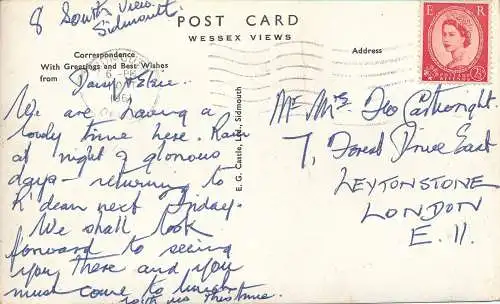 8 South View.
Sidmouth.
POST CARD
WESSEX VIEWS
Correspondence
Address
With Greetings and Best Wishes
from
6-PM
196
E R
POSTAGE REVENUE
2½D
We are having a
lovely time here. Rain
at night & glorious
days - returning to
R'dean next Friday.
We shall look
forward to seeing
you there and you
must come to lunch
with us this time.
E. G. Castle, Ltd., Sidmouth
Mr Mrs Geo Cartwright
7, Forest Drive East
LEYTONSTONE
LONDON
E. 11.